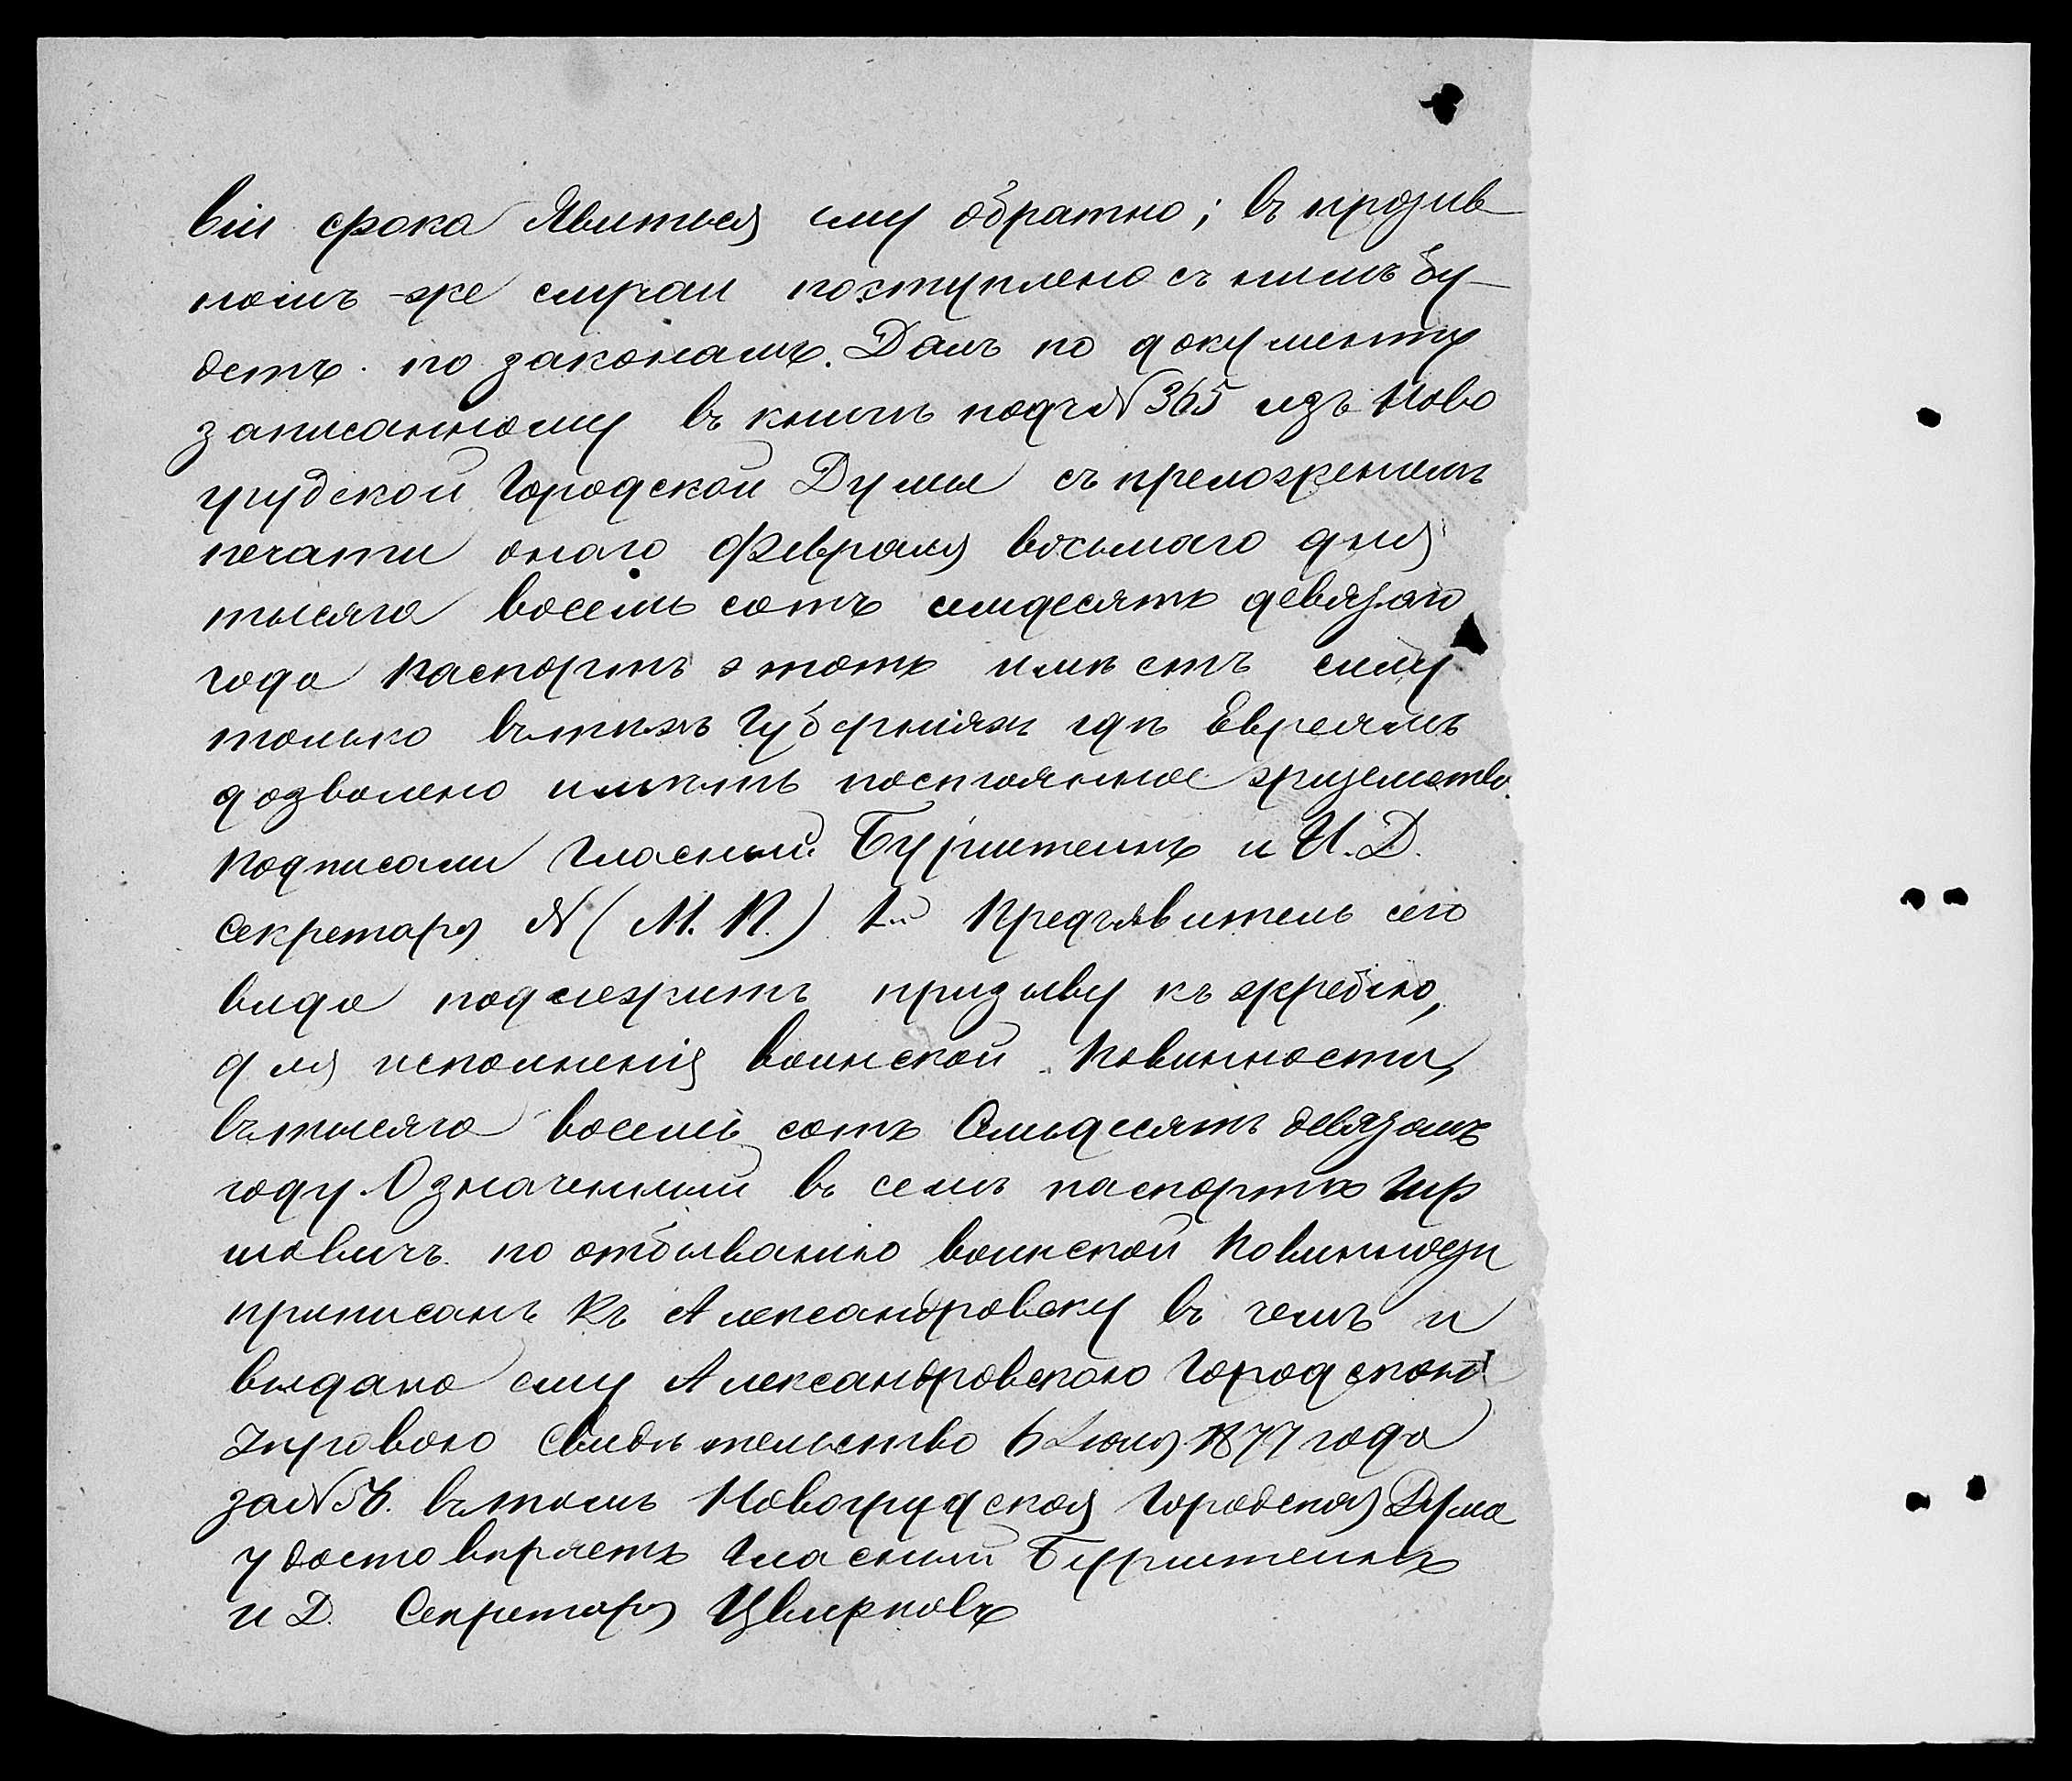 віи срока явиться ему обратно; въ продзив
номъ-же случаи поступлено съ нимъ бу-
детъ по законамъ. Данъ по документу
записанному въ книгѣ подъ № 365 изъ Ново
грудской Городской Думы съ преложениемъ
печати онаго Февраля восьмаго дня
тысяча восемь сотъ семдесятъ девязаго
года Паспортъ этотъ имѣетъ силу
только въ тѣхъ Губерніяхъ гдѣ Евреямъ
дозволено имѣть постоянное жизельство.
Подписали Гласный Бурштеинъ и И. Д.
Секретаря № (М. П.) 1й Предъявитель сего
вида подлежитъ призыву къ жребію,
для исполненія воинской Повинности,
въ тысяча восемь сотъ Семьдесятъ девязомъ
году. Означенный въ семъ паспортѣ Гир
шовичъ по отбыванію воинской Повинности
приписанъ къ Александровску въ чемъ и
выдано ему Александровскою Городскою
Управою Свидѣтельство 6 Іюля 1877 года
за № 56. въ томъ Новогрудская Городская Дума
удостовѣряетъ Гласный Бурштеинъ
и Д. Секретаря Цвирковъ